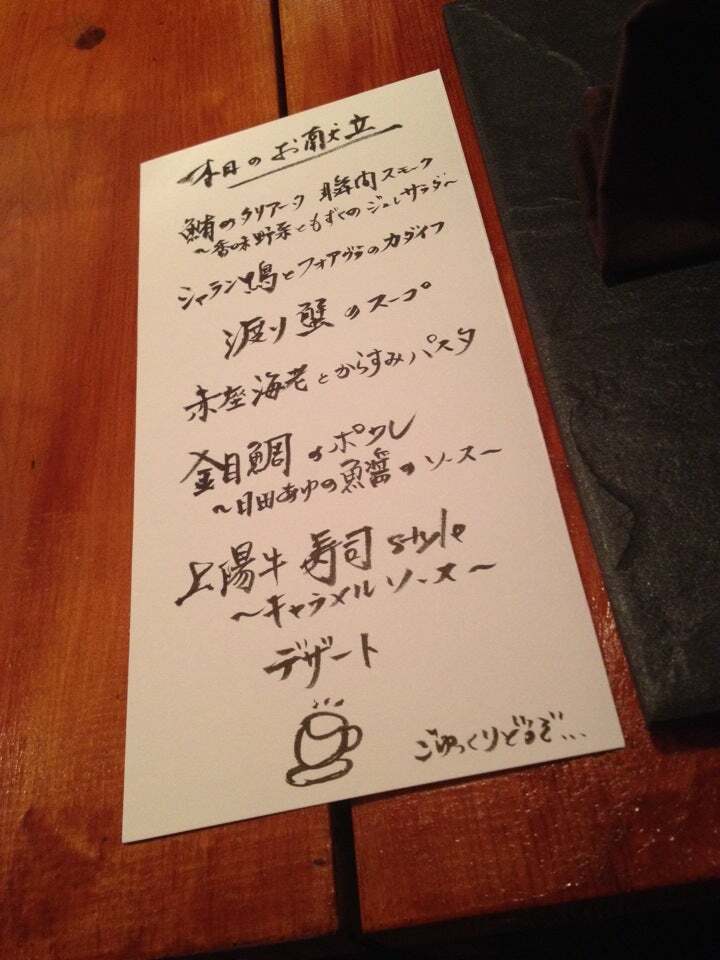 本日のお献立
鮪のタリアータ 瞬間スモーク
～香味野菜ともずくのジュレサラダ～
シャラン鴨とフォアグラのカダイフ
渡り蟹のスープ
赤座海老とからすみパスタ
金目鯛のポワレ
～日田あゆの魚醤のソース～
上陽牛 寿司 style
～キャラメルソース～
デザート
ごゆっくりどうぞ...